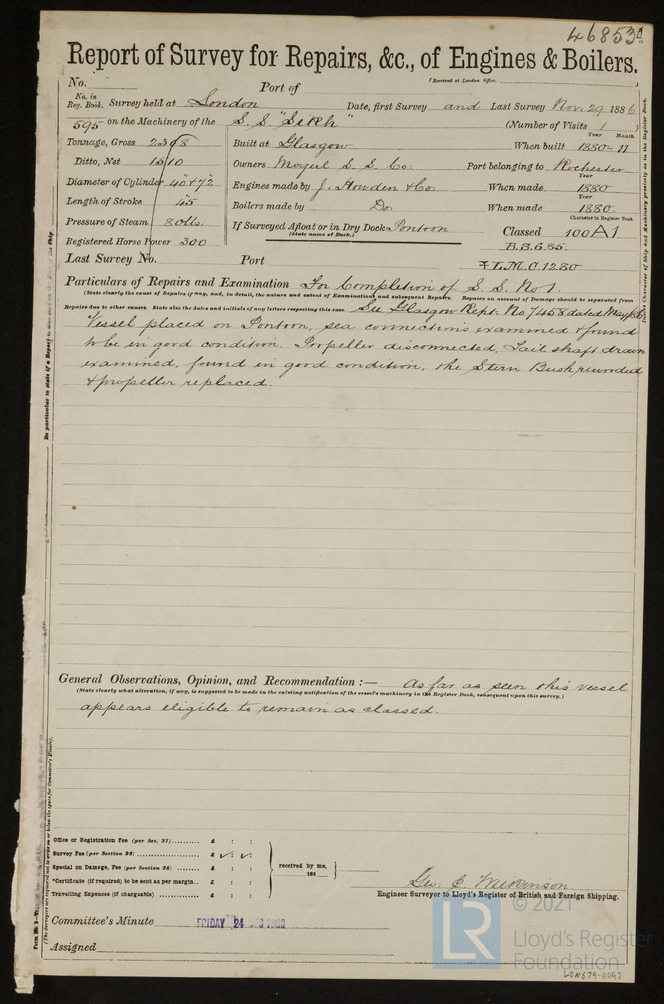 46853
Report of Survey for Repairs, &c., of Engines & Boilers.
(Received at London Office, )
No. Port of
No. in Reg. Book. Survey held at London Date, first Survey and Last Survey Nov. 29 1886
595 on the Machinery of the S.S. "Sikh" (Number of Visits 1 )
Year Month
Tonnage, Gross 2398 Built at Glasgow When built 1880-11
Ditto, Net 1510 Owners Mogul S. S. Co: Port belonging to Rochester
Year
Diameter of Cylinder 40" & 72" Engines made by J. Howden & Co. When made 1880
Year
Length of Stroke 45" Boilers made by Do. When made 1880.
Character in Register Book.
Pressure of Steam 80 lbs. If Surveyed Afloat or in Dry Dock Pontoon Classed 100A1
(State name of Dock.)
Registered Horse Power 300 B.S. 6.85.
Last Survey No. Port L.M.C. 12.80
Particulars of Repairs and Examination For Completion of S. S. No 1.
(State clearly the cause of Repairs if any, and, in detail, the nature and extent of Examinations and subsequent Repairs. Repairs on account of Damage should be separated from
Repairs due to other causes. State also the dates and initials of any letters respecting this case. See Glasgow Rept. No 7458 dated May/86
Vessel placed on Pontoon, sea connections examined & found
to be in good condition. Propeller disconnected, Tail shaft drawn
examined, found in good condition, the Stern Bush rewooded
& propeller replaced.
General Observations, Opinion, and Recommendation :— As far as seen this vessel
(State clearly what alteration, if any, is suggested to be made in the existing notification of the vessel's machinery in the Register Book, consequent upon this survey.)
appears eligible to remain as classed.
Office or Registration Fee (per Sec. 27) £ : :
Survey Fee (per Section 28) £ : :
Special on Damage, Fee (per Section 28) £ : :
*Certificate (if required) to be sent as per margin £ : :
Travelling Expenses (if chargeable) £ : :
received by me,
188
Geo: C. Wilkinson
Engineer Surveyor to Lloyd's Register of British and Foreign Shipping.
Committee's Minute FRIDAY 24 DEC 1886
Assigned
© 2021
LR
Lloyd's Register
Foundation
LON679-0097